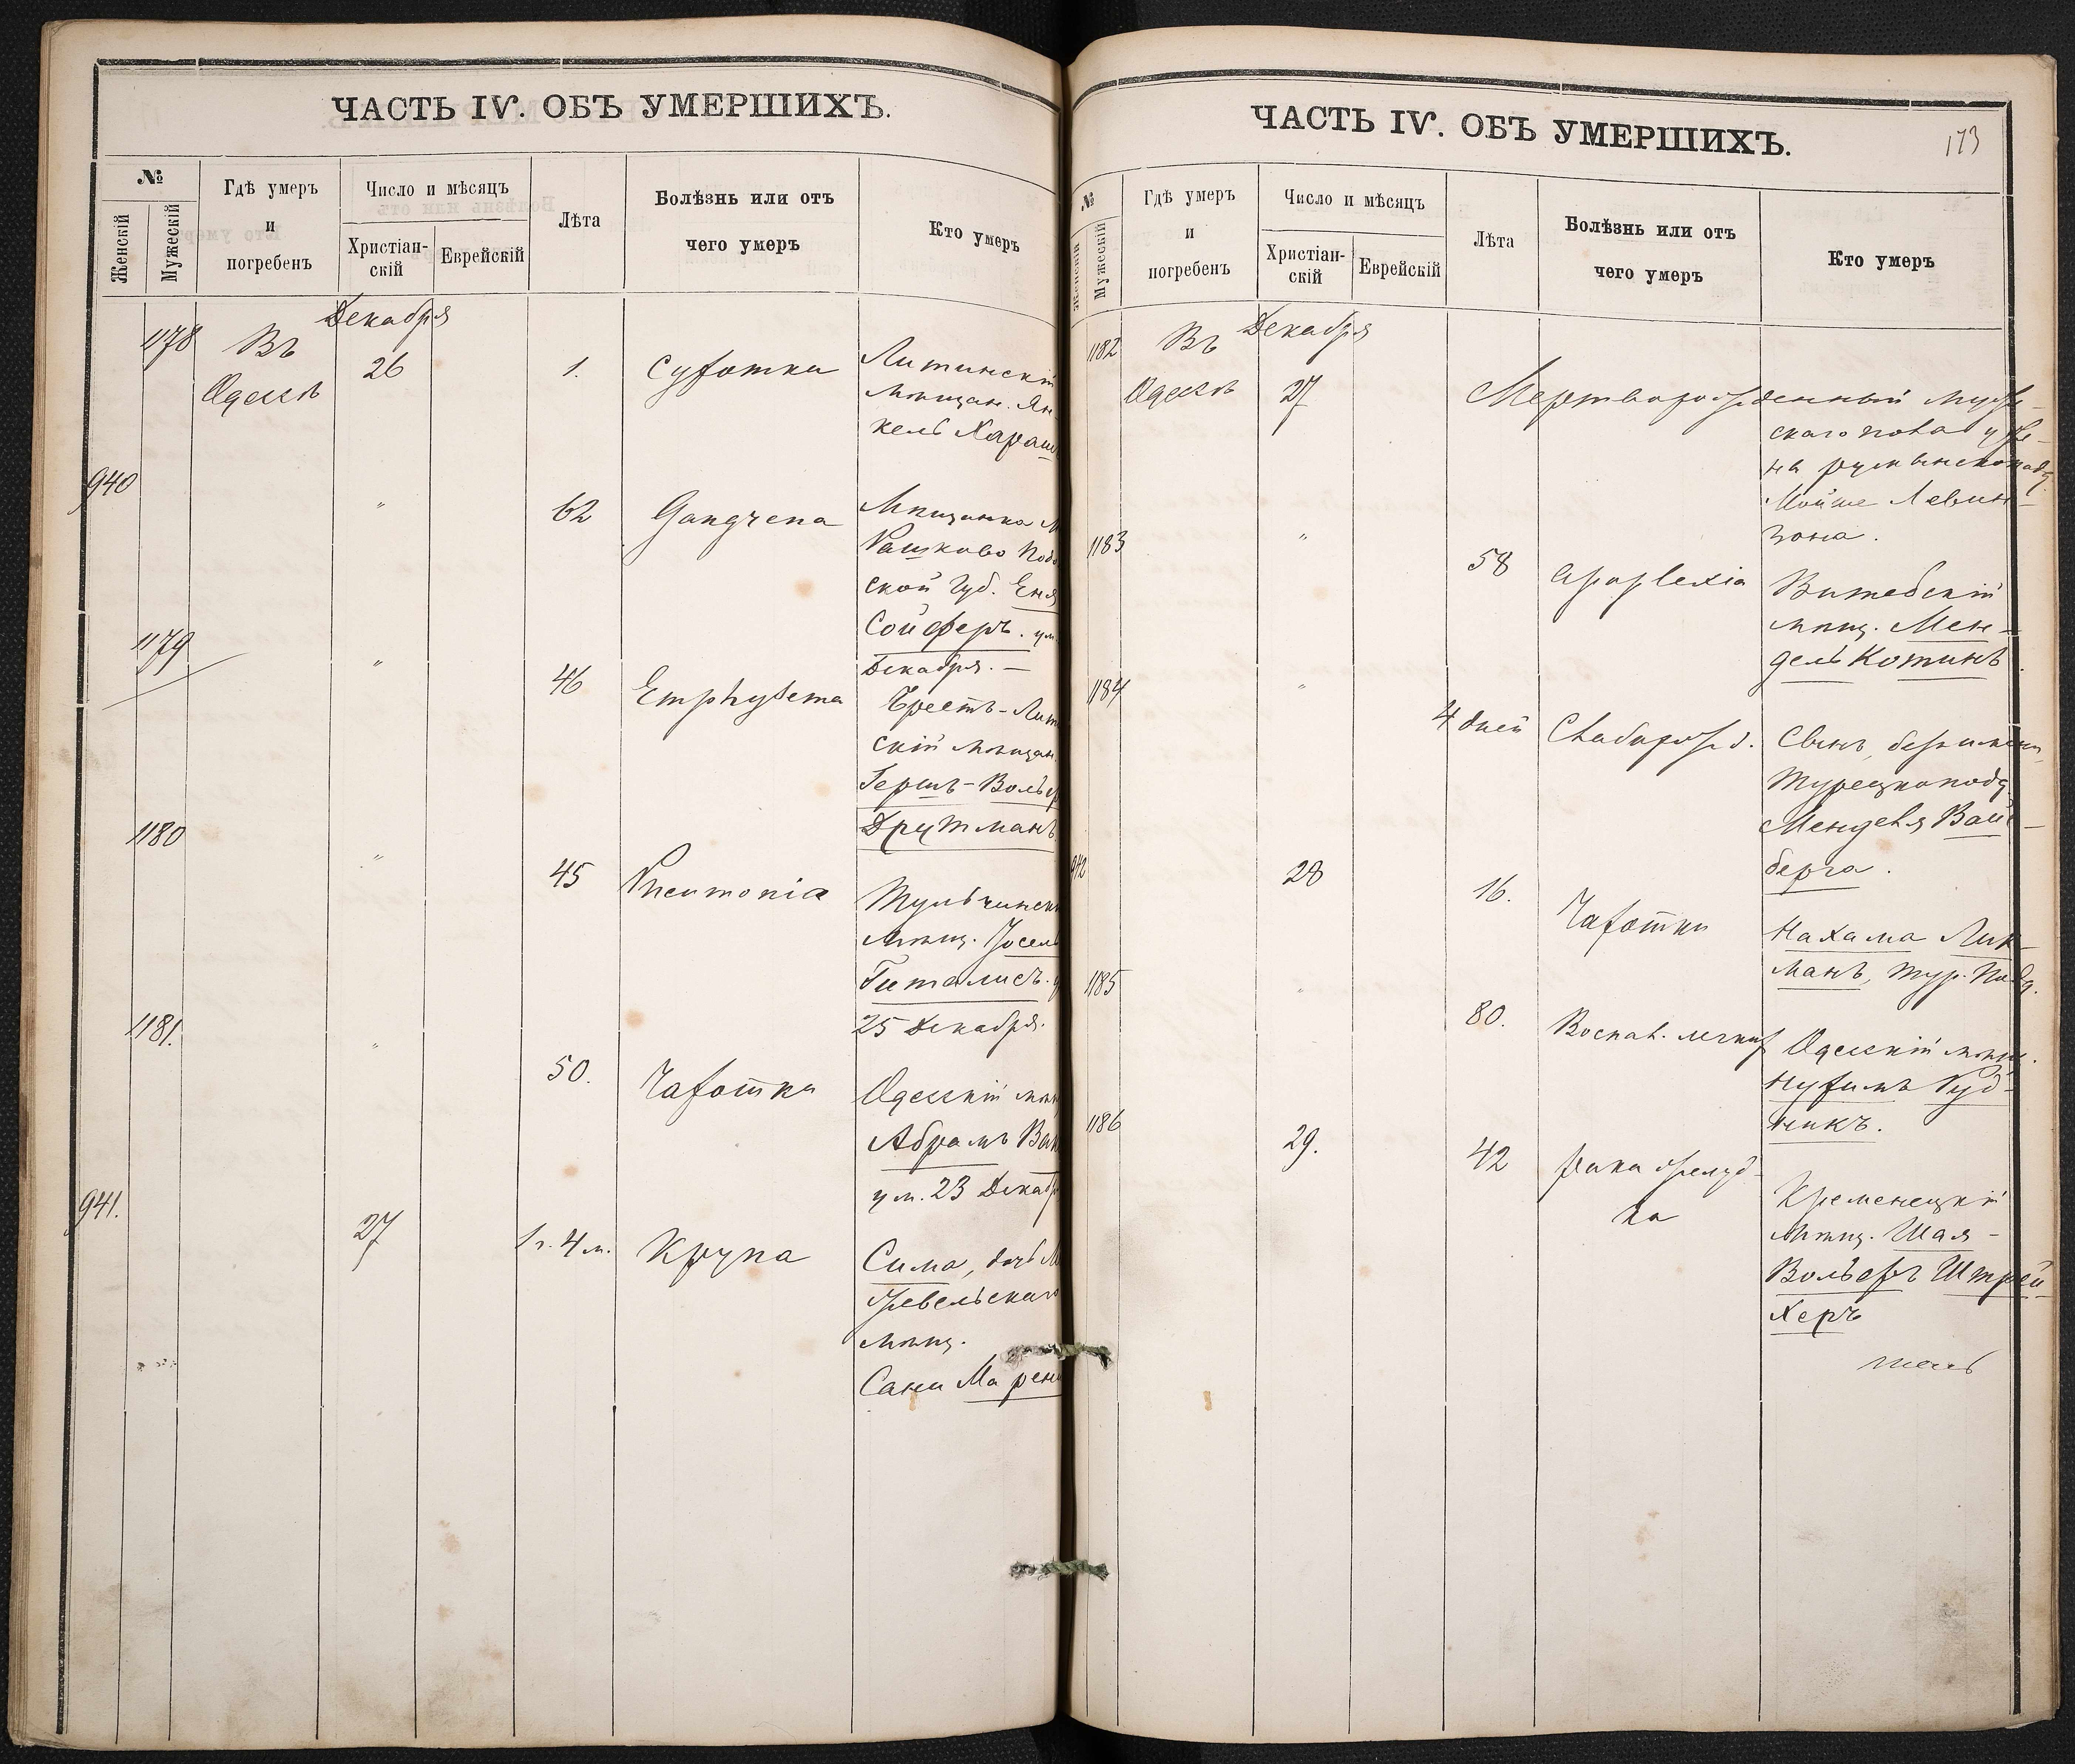 ЧАСТЬ IV. ОБЪ УМЕРШИХЪ.
№
Женскій
Мужескій
Гдѣ умеръ
и
погребенъ
Число и мѣсяцъ
Христіан-
скій
Еврейскій
Лѣта
Болѣзнь или отъ
чего умеръ
Кто умеръ
Декабря
1178
Въ
Одессѣ
26
1.
Литинскій
мѣщан. Ян
кель Хараш
940
"
62
Gangrena
Мѣщанка м
Рашково Подо
ской Губ. Еня
Сойферъ. ум.
Декабря. —
1179
"
46
Emphysema
Брестъ-Лит
скій мѣщан.
Гершъ-Вольф
Друтманъ
1180
"
45
Pneumonia
Тульчинск
мѣщ. Іосель
Гиталисъ. у
25 Декабря.
1181.
"
50.
Чахотки
Одесскій мѣщ
Абрамъ Ва
ум. 23 Декаб
941.
27
1 г. 4 м.
Крупа
Сима, дочь М
мѣщ.
Сани Марен
ЧАСТЬ IV. ОБЪ УМЕРШИХЪ.
173
№
Женскій
Мужескій
Гдѣ умеръ
и
погребенъ
Число и мѣсяцъ
Христіан-
скій
Еврейскій
Лѣта
Болѣзнь или отъ
чего умеръ
Кто умеръ
Декабря
1182
Въ
Одессѣ
27
Мертворожденный муже-
скаго пола у же-
ны румынскоподд.
Мойше Левин-
зона.
1183
"
58
apoplexia
Витебскій
мѣщ. Мен-
дель Котинъ
1184
"
4 дней
Слаборожд.
Сынъ, безъимен.
Турецкоподд.
Менделя Вай-
берга.
942
28
16.
Чахотки
Нахама Лик-
манъ, тур. подд.
1185
"
80.
Воспал. легких
Одесскій мѣщ.
Нухимъ Руд-
никъ.
1186
29.
42
Рака желуд-
ка
Кременецкій
мѣщ. Шая-
Вольфъ Штрей
херъ